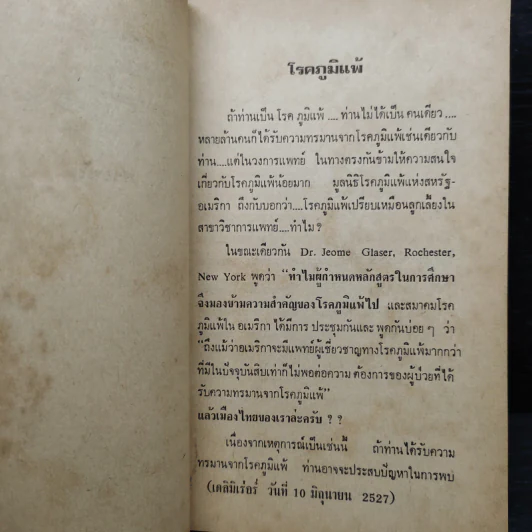 โรคภูมิแพ้
ถ้าท่านเป็น โรค ภูมิแพ้ .... ท่านไม่ได้เป็น คนเดียว ....
หลายล้านคนก็ได้รับความทรมานจากโรคภูมิแพ้เช่นเดียวกับ
ท่าน....แต่ในวงการแพทย์ ในทางตรงกันข้ามให้ความสนใจ
เกี่ยวกับโรคภูมิแพ้น้อยมาก มูลนิธิโรคภูมิแพ้แห่งสหรัฐ-
อเมริกา ถึงกับบอกว่า....โรคภูมิแพ้เปรียบเหมือนลูกเลี้ยงใน
สาขาวิชาการแพทย์....ทำไม ?
ในขณะเดียวกัน Dr. Jeome Glaser, Rochester,
New York พูดว่า "ทำไมผู้กำหนดหลักสูตรในการศึกษา
จึงมองข้ามความสำคัญของโรคภูมิแพ้ไป และสมาคมโรค
ภูมิแพ้ใน อเมริกา ได้มีการ ประชุมกันและ พูดกันบ่อย ๆ ว่า
"ถึงแม้ว่าอเมริกาจะมีแพทย์ผู้เชี่ยวชาญทางโรคภูมิแพ้มากกว่า
ที่มีในปัจจุบันสิบเท่าก็ไม่พอต่อความ ต้องการของผู้ป่วยที่ได้
รับความทรมานจากโรคภูมิแพ้"
แล้วเมืองไทยของเราล่ะครับ ? ?
เนื่องจากเหตุการณ์เป็นเช่นนี้ ถ้าท่านได้รับความ
ทรมานจากโรคภูมิแพ้ ท่านอาจจะประสบปัญหาในการพบ
(เดลิมิเร่อร์ วันที่ 10 มิถุนายน 2527)